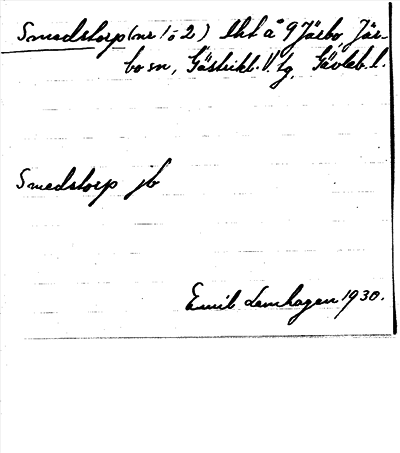 Smedstorp (nr 1 o 2) lht å 9 Järbo, Jär-
bo sn, Gästrikl. V. tg, Gävleb. l.
Smedstorp jb
Emil Lamhagen 1930.